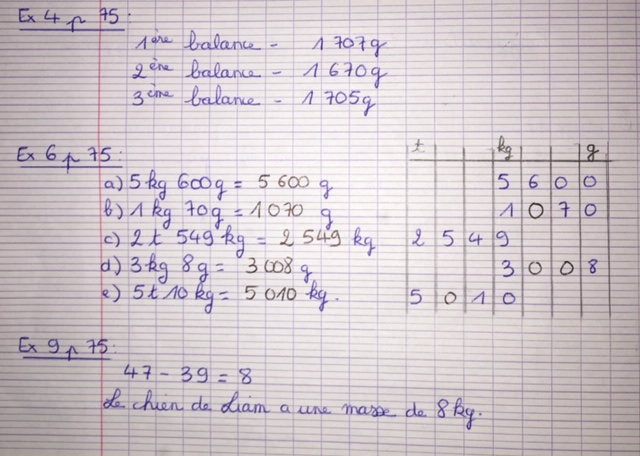 Ex 4 p 75:
1ère balance - 1 707g
2ème balance - 1 670g
3ème balance - 1 705g
Ex 6 p 75:
t kg g
a) 5 kg 600g = 5 600 g 5 6 0 0
b) 1 kg 70g = 1 070 g 1 0 7 0
c) 2 t 549 kg = 2 549 kg 2 5 4 9
d) 3 kg 8g = 3 008 g 3 0 0 8
e) 5t 10 kg = 5 010 kg. 5 0 1 0
Ex 9 p 75:
47 - 39 = 8
Le chien de Liam a une masse de 8 kg.